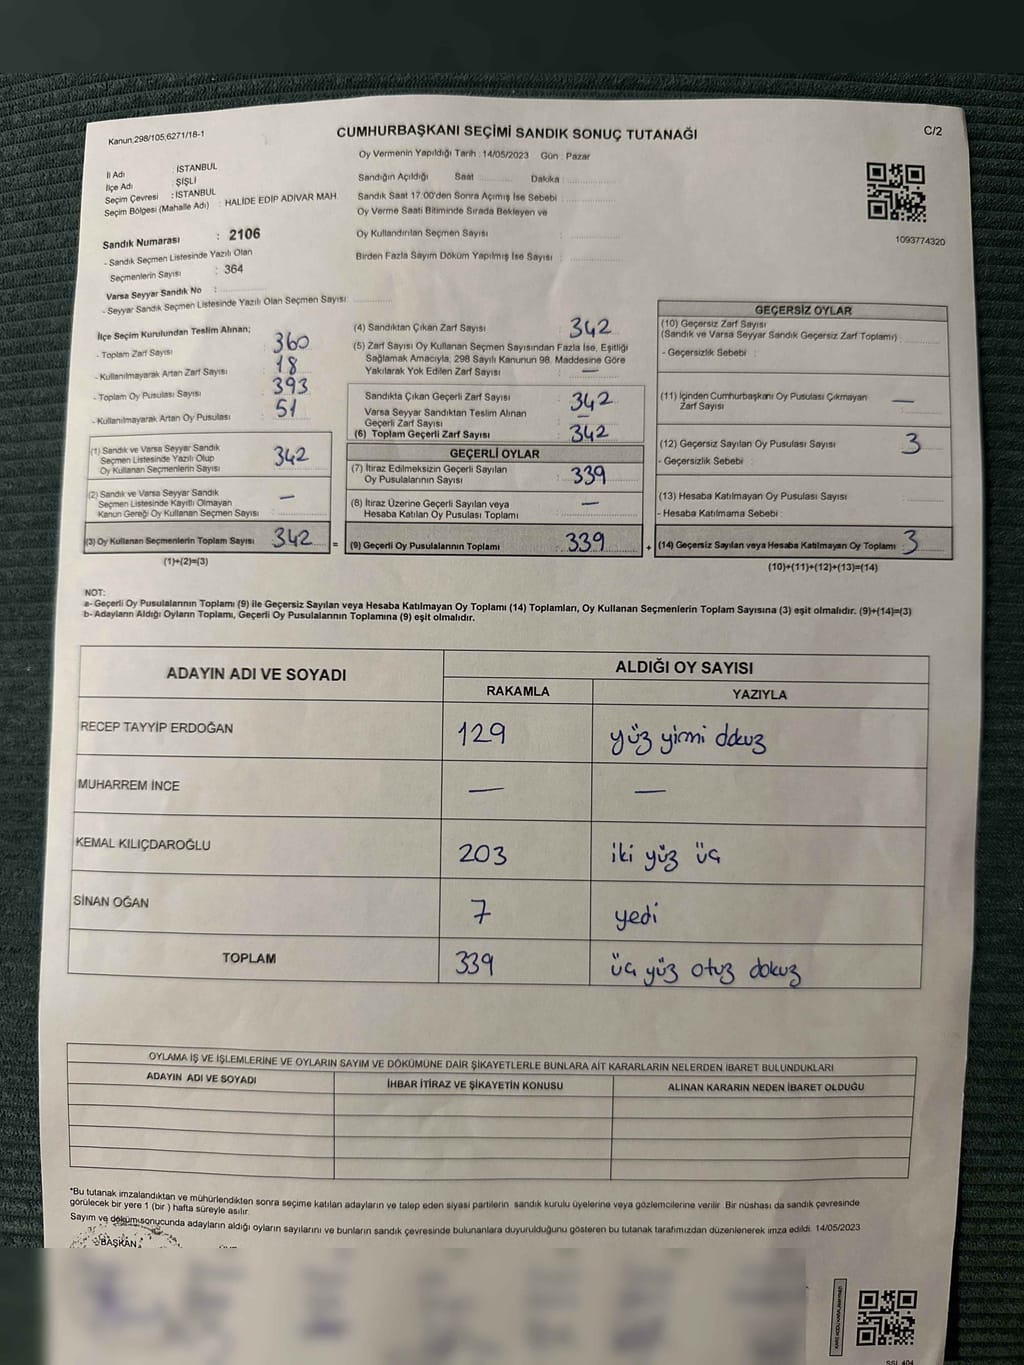 Kanun,298/105,6271/18-1
CUMHURBAŞKANI SEÇİMİ SANDIK SONUÇ TUTANAĞI
C/2
Oy Vermenin Yapıldığı Tarih : 14/05/2023 Gün : Pazar
İl Adı : İSTANBUL
İlçe Adı : ŞİŞLİ
Seçim Çevresi : İSTANBUL
Seçim Bölgesi (Mahalle Adı) : HALİDE EDİP ADIVAR MAH.
Sandığın Açıldığı Saat Dakika
Sandık Saat 17.00'den Sonra Açımış İse Sebebi
Oy Verme Saati Bitiminde Sırada Bekleyen ve
Oy Kullandırılan Seçmen Sayısı
Birden Fazla Sayım Döküm Yapılmış İse Sayısı
1093774320
Sandık Numarası : 2106
- Sandık Seçmen Listesinde Yazılı Olan
Seçmenlerin Sayısı : 364
Varsa Seyyar Sandık No :
- Seyyar Sandık Seçmen Listesinde Yazılı Olan Seçmen Sayısı:
İlçe Seçim Kurulundan Teslim Alınan;
- Toplam Zarf Sayısı : 360
- Kullanılmayarak Artan Zarf Sayısı : 18
- Toplam Oy Pusulası Sayısı : 393
- Kullanılmayarak Artan Oy Pusulası : 51
(1) Sandık ve Varsa Seyyar Sandık
Seçmen Listesinde Yazılı Olup
Oy Kullanan Seçmenlerin Sayısı : 342
(2) Sandık ve Varsa Seyyar Sandık
Seçmen Listesinde Kayıtlı Olmayan
Kanun Gereği Oy Kullanan Seçmen Sayısı : —
(3) Oy Kullanan Seçmenlerin Toplam Sayısı : 342
(1)+(2)=(3)
(4) Sandıktan Çıkan Zarf Sayısı : 342
(5) Zarf Sayısı Oy Kullanan Seçmen Sayısından Fazla İse, Eşitliği
Sağlamak Amacıyla, 298 Sayılı Kanunun 98. Maddesine Göre
Yakılarak Yok Edilen Zarf Sayısı : —
Sandıkta Çıkan Geçerli Zarf Sayısı : 342
Varsa Seyyar Sandıktan Teslim Alınan
Geçerli Zarf Sayısı : —
(6) Toplam Geçerli Zarf Sayısı : 342
GEÇERLİ OYLAR
(7) İtiraz Edilmeksizin Geçerli Sayılan
Oy Pusulalarının Sayısı : 339
(8) İtiraz Üzerine Geçerli Sayılan veya
Hesaba Katılan Oy Pusulası Toplamı : —
= (9) Geçerli Oy Pusulalarının Toplamı : 339
GEÇERSİZ OYLAR
(10) Geçersiz Zarf Sayısı
(Sandık ve Varsa Seyyar Sandık Geçersiz Zarf Toplamı) :
- Geçersizlik Sebebi :
(11) İçinden Cumhurbaşkanı Oy Pusulası Çıkmayan
Zarf Sayısı —
(12) Geçersiz Sayılan Oy Pusulası Sayısı 3
- Geçersizlik Sebebi :
(13) Hesaba Katılmayan Oy Pusulası Sayısı
- Hesaba Katılmama Sebebi :
+ (14) Geçersiz Sayılan veya Hesaba Katılmayan Oy Toplamı : 3
(10)+(11)+(12)+(13)=(14)
NOT:
a- Geçerli Oy Pusulalarının Toplamı (9) ile Geçersiz Sayılan veya Hesaba Katılmayan Oy Toplamı (14) Toplamları, Oy Kullanan Seçmenlerin Toplam Sayısına (3) eşit olmalıdır. (9)+(14)=(3)
b- Adayların Aldığı Oyların Toplamı, Geçerli Oy Pusulalarının Toplamına (9) eşit olmalıdır.
ADAYIN ADI VE SOYADI ALDIĞI OY SAYISI
RAKAMLA YAZIYLA
RECEP TAYYİP ERDOĞAN 129 yüz yirmi dokuz
MUHARREM İNCE — —
KEMAL KILIÇDAROĞLU 203 iki yüz üç
SİNAN OĞAN 7 yedi
TOPLAM 339 üç yüz otuz dokuz
OYLAMA İŞ VE İŞLEMLERİNE VE OYLARIN SAYIM VE DÖKÜMÜNE DAİR ŞİKAYETLERLE BUNLARA AİT KARARLARIN NELERDEN İBARET BULUNDUKLARI
ADAYIN ADI VE SOYADI İHBAR İTİRAZ VE ŞİKAYETİN KONUSU ALINAN KARARIN NEDEN İBARET OLDUĞU
*Bu tutanak imzalandıktan ve mühürlendikten sonra seçime katılan adayların ve talep eden siyasi partilerin sandık kurulu üyelerine veya gözlemcilerine verilir. Bir nüshası da sandık çevresinde
görülecek bir yere 1 (bir ) hafta süreyle asılır.
Sayım ve döküm sonucunda adayların aldığı oyların sayılarını ve bunların sandık çevresinde bulunanlara duyurulduğunu gösteren bu tutanak tarafımızdan düzenlenerek imza edildi. 14/05/2023
BAŞKAN